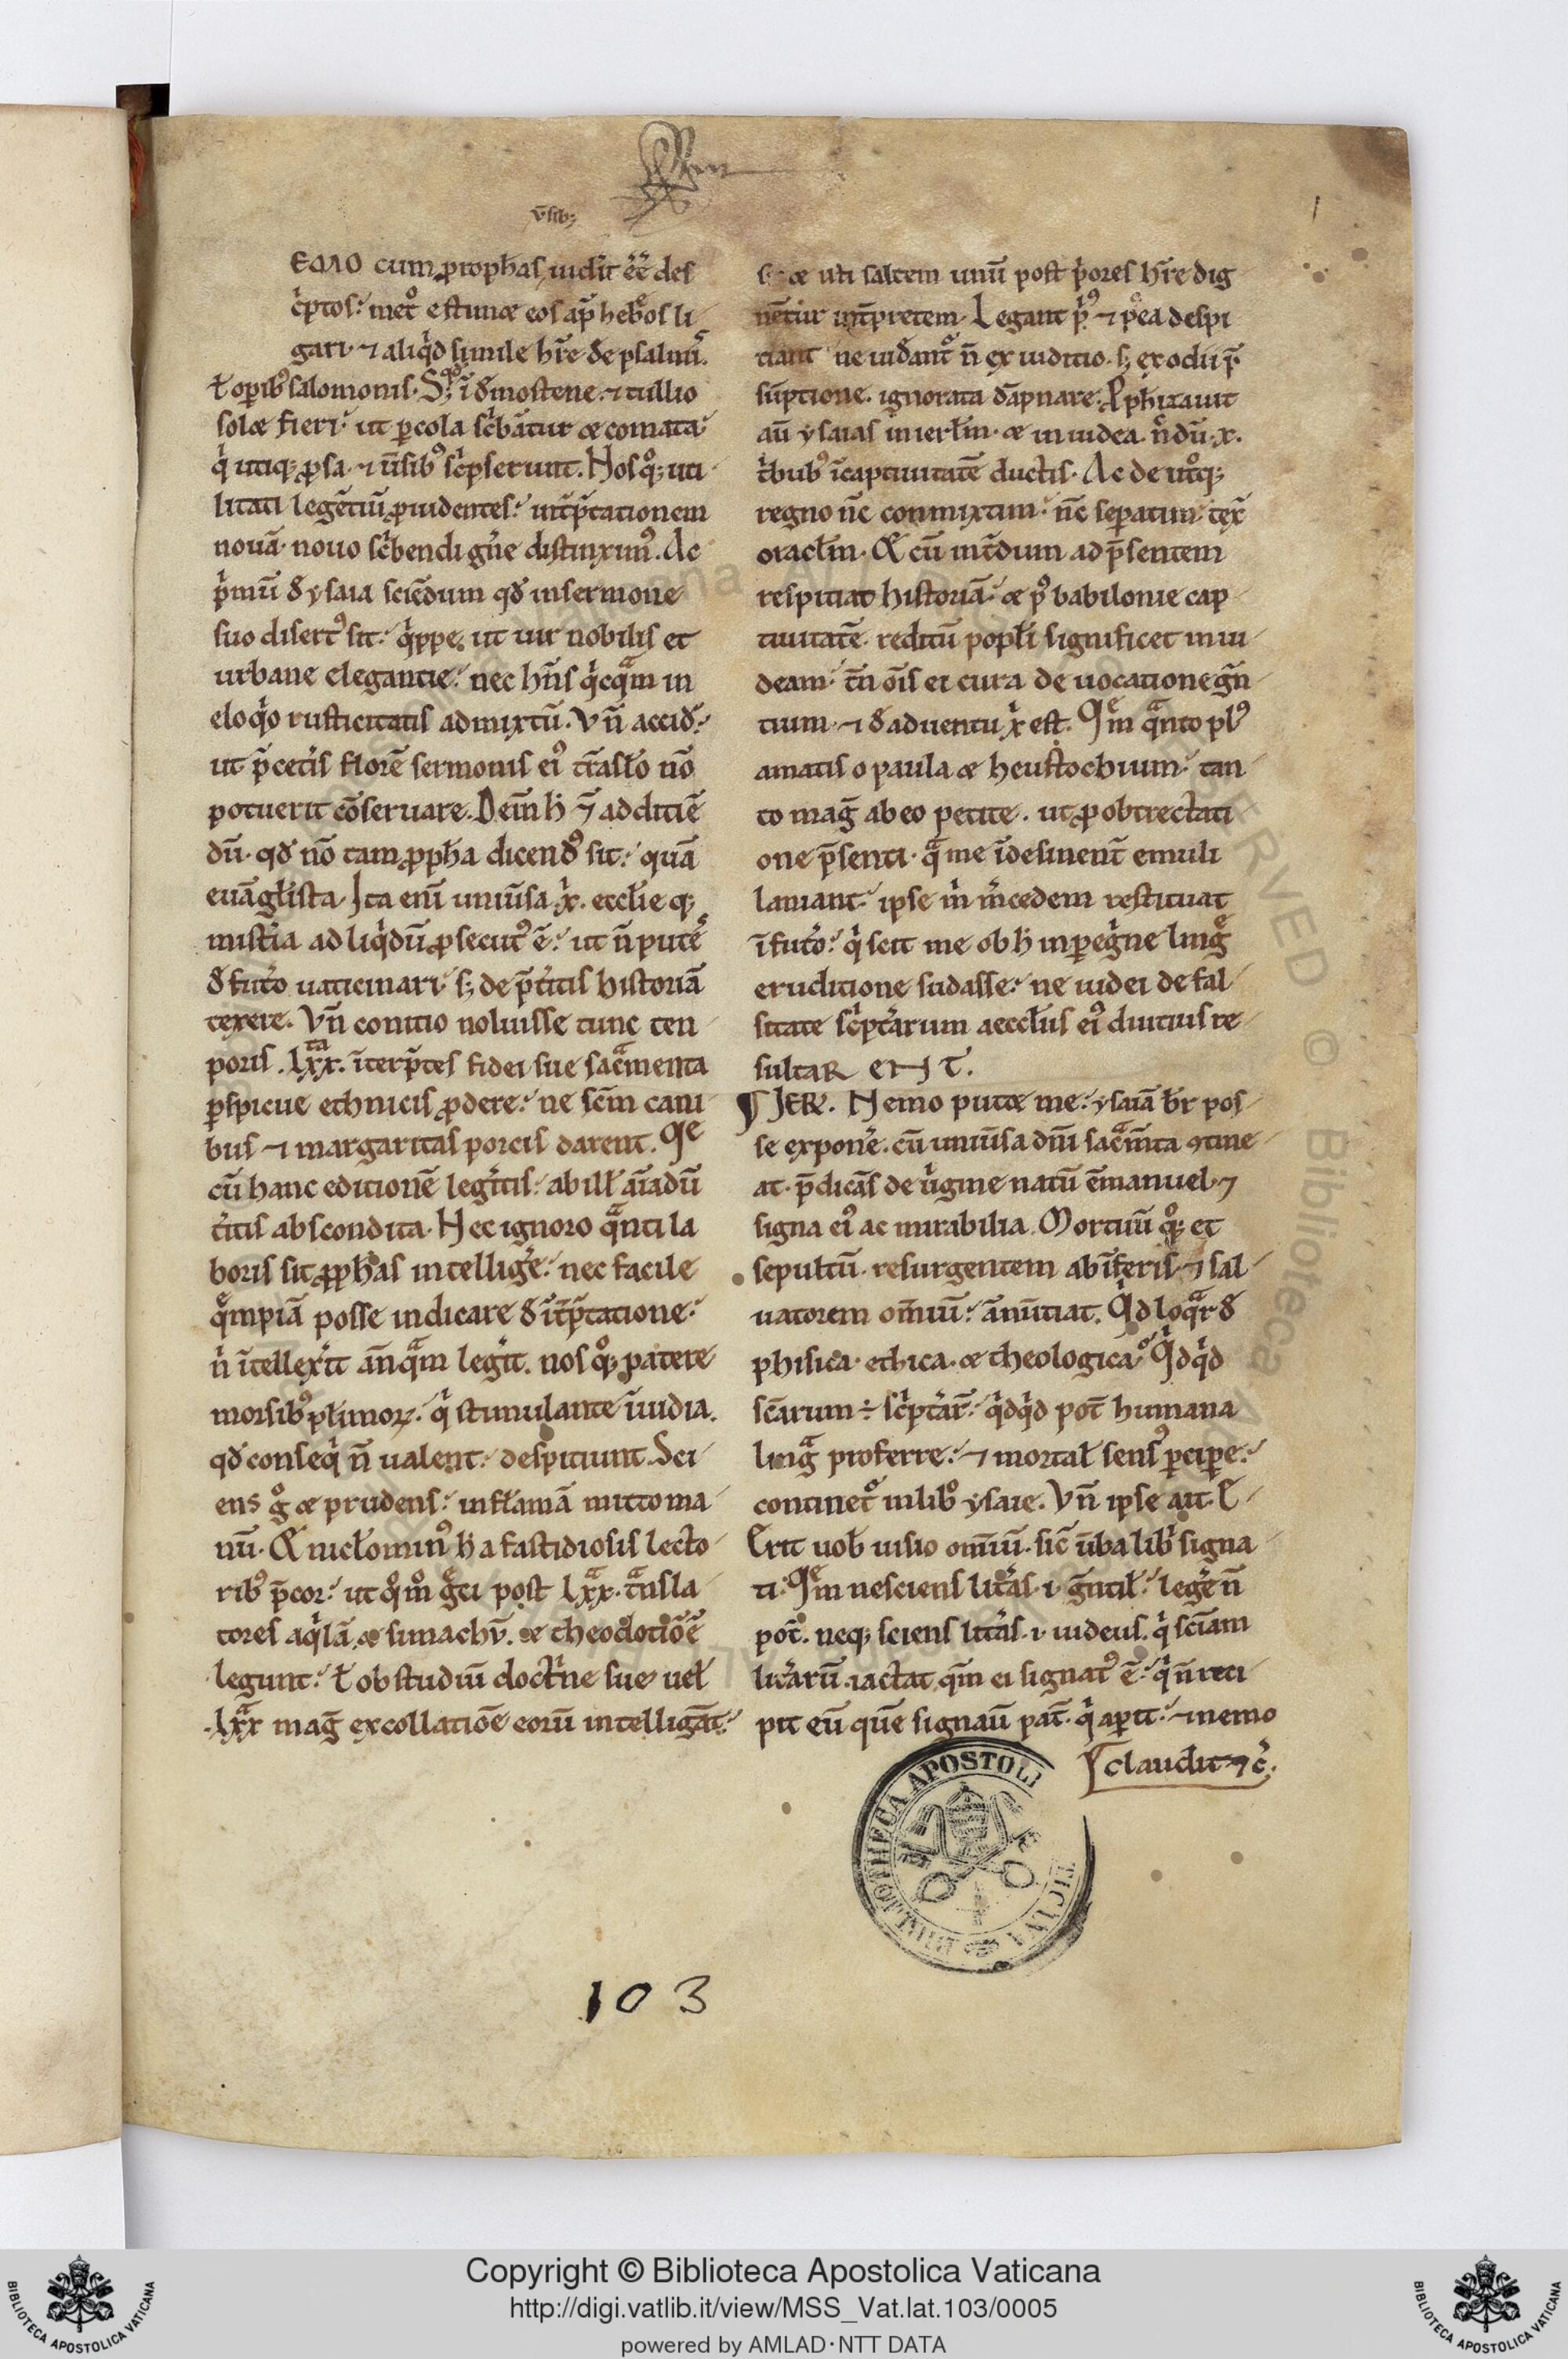 v̄sib;
EMO cum ꝓpħas uid̾it eē des
c̾ptos: metͦ estimæ eos ap̄ hebͤos li
gari. ⁊ aliq̾d simile hr̄e de psalmis̾.
ł opib⁹ salomonis. S; qͦ ī d̾mostene. ⁊ tullio
solæ fieri. ut ꝑ cola sc̾bāt̄ur æ comata.
q̾ utiq; ꝓsa. ⁊ ūsib⁹ sc̾pserunt. Nos qͦ; uti
litati legētiū ꝓuidentes: int̄p̄tationem
nouā. nouo sc̾bendi gn̄e distinxim⁹. Ac
p̾mū d̾ ysaia sciēdum qd̾ in sermone
suo disert⁹ sit: q̾ppe. ut uir nobilis et
urbane elegantie: nec hn̄s q̾cqͣm in
eloq̾o rusticitatis admixtū. Vn̄ accid̾:
ut p̄ cet̾is florē sermonis ei⁹ tͣnslło nō
potuerit cōseruare. Dein̄ ħ ⁊̄ adiciē
dū. qd̾ nō tam ꝓpħa dicend⁹ sit: quā
euāgłista. Ita enī uniūsa x̾. eccłie q;
mist̾ia ad liq̾dū ꝓsecut⁹ ē: ut n̄ putē̾
d̾ fut̾o uaticinari. s; de p̄t̾itis historiā
texere. Vn̄ conitio noluisse tunc ten
poris. Lxxͭͣ. īterp̄tes fidei sue sacͣmenta
ꝑspicue ethnicis ꝓdere: ne sc̄m cani
bus ⁊ margaritas porcis darent. Qe
cū hanc editionē leg̾itis: ab illł aīadū
t̾itis abscondita. Nec ignoro qͣnti la
boris sit ꝓpħas intellig̾e: nec facile
qͤmpiā posse iudicare d̾ ītp̄tatione:
n̾ ītellex̾it an̄qͣm leg̾it. nos qͦ; patere
morsib⁹ pł̾imoꝝ: q̾ stimulante īuidia.
qd̾ conseq̾ n̄ ualent: despitiunt. Sci
ens gͦ æ prudens: in fłāmā mitto ma
nū. & nicłomin⁹ ħ a fastidiosis lecto
rib⁹ p̄cor: ut qͦmͦ gͤci post Lxxͣ. tͣnsla
tores aq̾lā æ simachū. æ theodotiōē
legunt: ł ob studiū doct̾ne sue uel
Lxxͣ mag̾ ex collatiōe eorū intelligāt:
æ uti saltem unū post p̾ores hr̄e dig
nētur int̄pretem. Legant p̾⁹ ⁊ pͦea despi
tiant ne uid̾ant̾ n̄ ex iuditio. s; ex odii p̄
sūptione. ignorata dāpnare. Ꝓpħitauit
aū ysaias in ierłm. æ in iudea. n̄dū .x.
t̾bub⁹ ī captiuitatē ductis. Ac de utͦq;
regno nc̄ conmixtim: nc̄ sepatim. tex̾
oracłm. & cū int̾dum ad p̄sentem
respitiat historiā: æ pͦ babilonie cap
tiuitatē. reditū popłi significet in iu
deam: tn̄ oīs ei cura de uocatione gn̄
tium. ⁊ d̾ aduentu x̾ est. Qͤm qͣnto pl⁹
amatis o paula æ heustochium: tan
to mag̾ ab eo petite. ut ꝓ obtrectati
one p̄senti. qͣ me īdesinent̾ emuli
laniant: ipse m̾ m̾cedem restituat
ī fut̾o: q̾ scit me ob ħ in ꝑeg̾ne lingͤ
eruditione sudasse: ne iudei de fal
sitate sc̾ptͣrum æccłiis ei⁹ diutius re
sultaR ENT.
¶ JER. Nemo putæ me: ysaiā br̄ pos
se expon̾e. cū uniūsa dn̄i sacͣm̄ta ꝯtine
at. p̄dicās de u̾gine natū ēmanuel. ⁊
signa ei⁹ ac mirabilia. Mortuū qͦ; et
sepultū. resurgentem ab īferis. ⁊ sal
uatorem om̄iū: ānūtiat. Qd loqͣr d̾
phisica. ethica. æ theologica? Q̾dq̾d
sc̄arum ÷ sc̾ptͣr̄: q̾dq̾d pot̄ humana
lingͣ proferre: ⁊ mortał sens⁹ ꝑcipe:
continetͦ in libͦ ysaie. Vn̄ ipse ait. E
Erit uob̾ uisio om̄iū. sic̄ ūba lib̾ signa
ti. Qͤm nesciens lit̾as. i. gn̄tił: leg̾e n̄
pot̄. neq; sciens lit̾as. i. iudeus. q̾ sc̄iam
lit̾arū iactat. qm̄ ei signat⁹ ē: q̾ n̄ reci
pit eū quē signaū pat̾. q̾ apit: ⁊ nemo
claudit ⁊c̾.
103
BIBLIOTHECA APOSTOLI
Copyright © Biblioteca Apostolica Vaticana
http://digi.vatlib.it/view/MSS_Vat.lat.103/0005
powered by AMLAD·NTT DATA
BIBLIOTECA APOSTOLICA VATICANA
BIBLIOTECA APOSTOLICA VATICANA